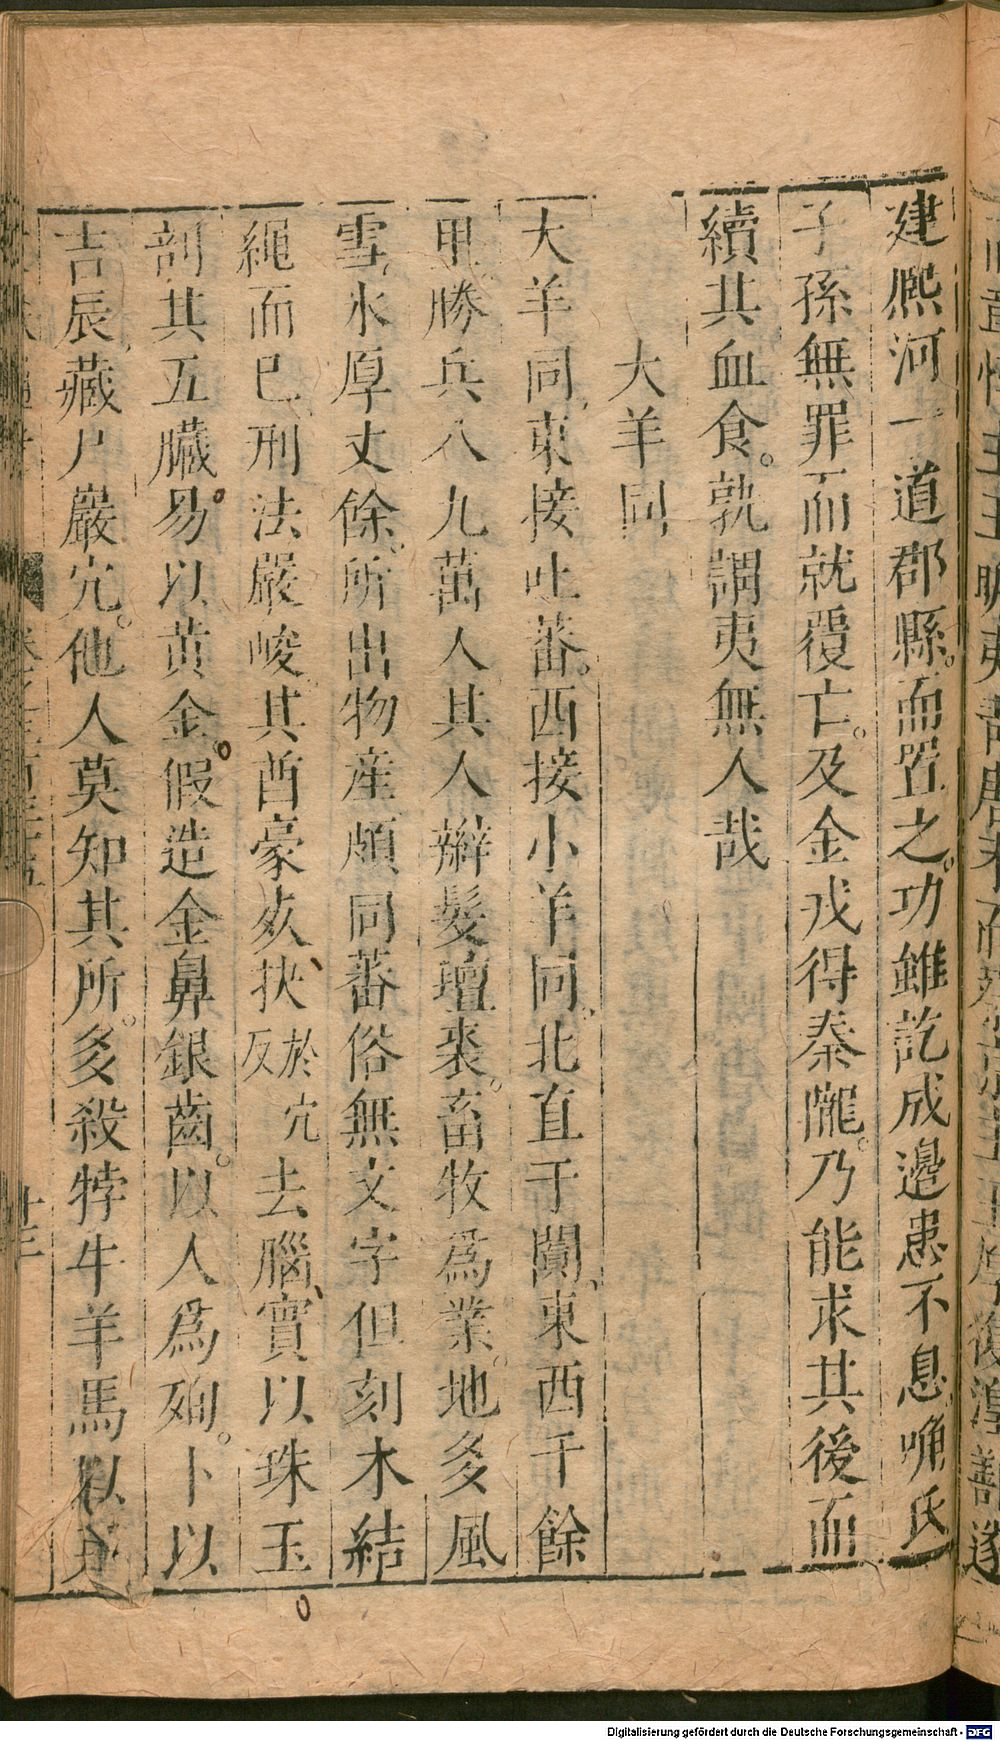 建熈河一道郡縣。而置之。功雖訖成邊患不息嘣氏
子孫無罪而就覆亡。及金戎得秦隴。乃能求其後而
續其血食。孰謂夷無人哉
大羊同
大羊同、東接吐蕃。西接小羊同。北直于闐、東西千餘
里。勝兵八九萬人其人辮髮氊裘。畜牧爲業。地多風
雪、冰厚丈餘、所出物産頗同蕃俗無文字但刻木結
繩而已刑法嚴峻其酋豪死抉於穴反去腦、實以珠玉
剖其五臟易。以黄金。假造金鼻銀齒。以人爲殉。卜以
吉辰藏尸巖穴。他人莫知其所。多殺牸牛羊馬以充
卷之三百三十
十三
Digitalisierung gefördert durch die Deutsche Forschungsgemeinschaft - DFG